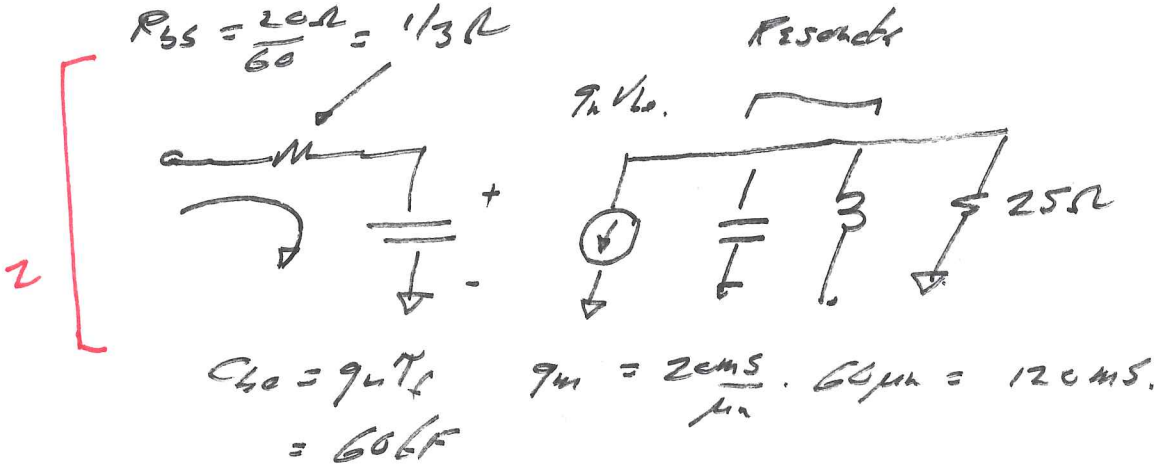 Rbb = 20Ω/60 = 1/3 Ω
Resonator
gm Vbe.
+
25Ω
-
2
Cbe = gm τf
gm = 20mS/μm · 60μm = 120mS.
= 60fF